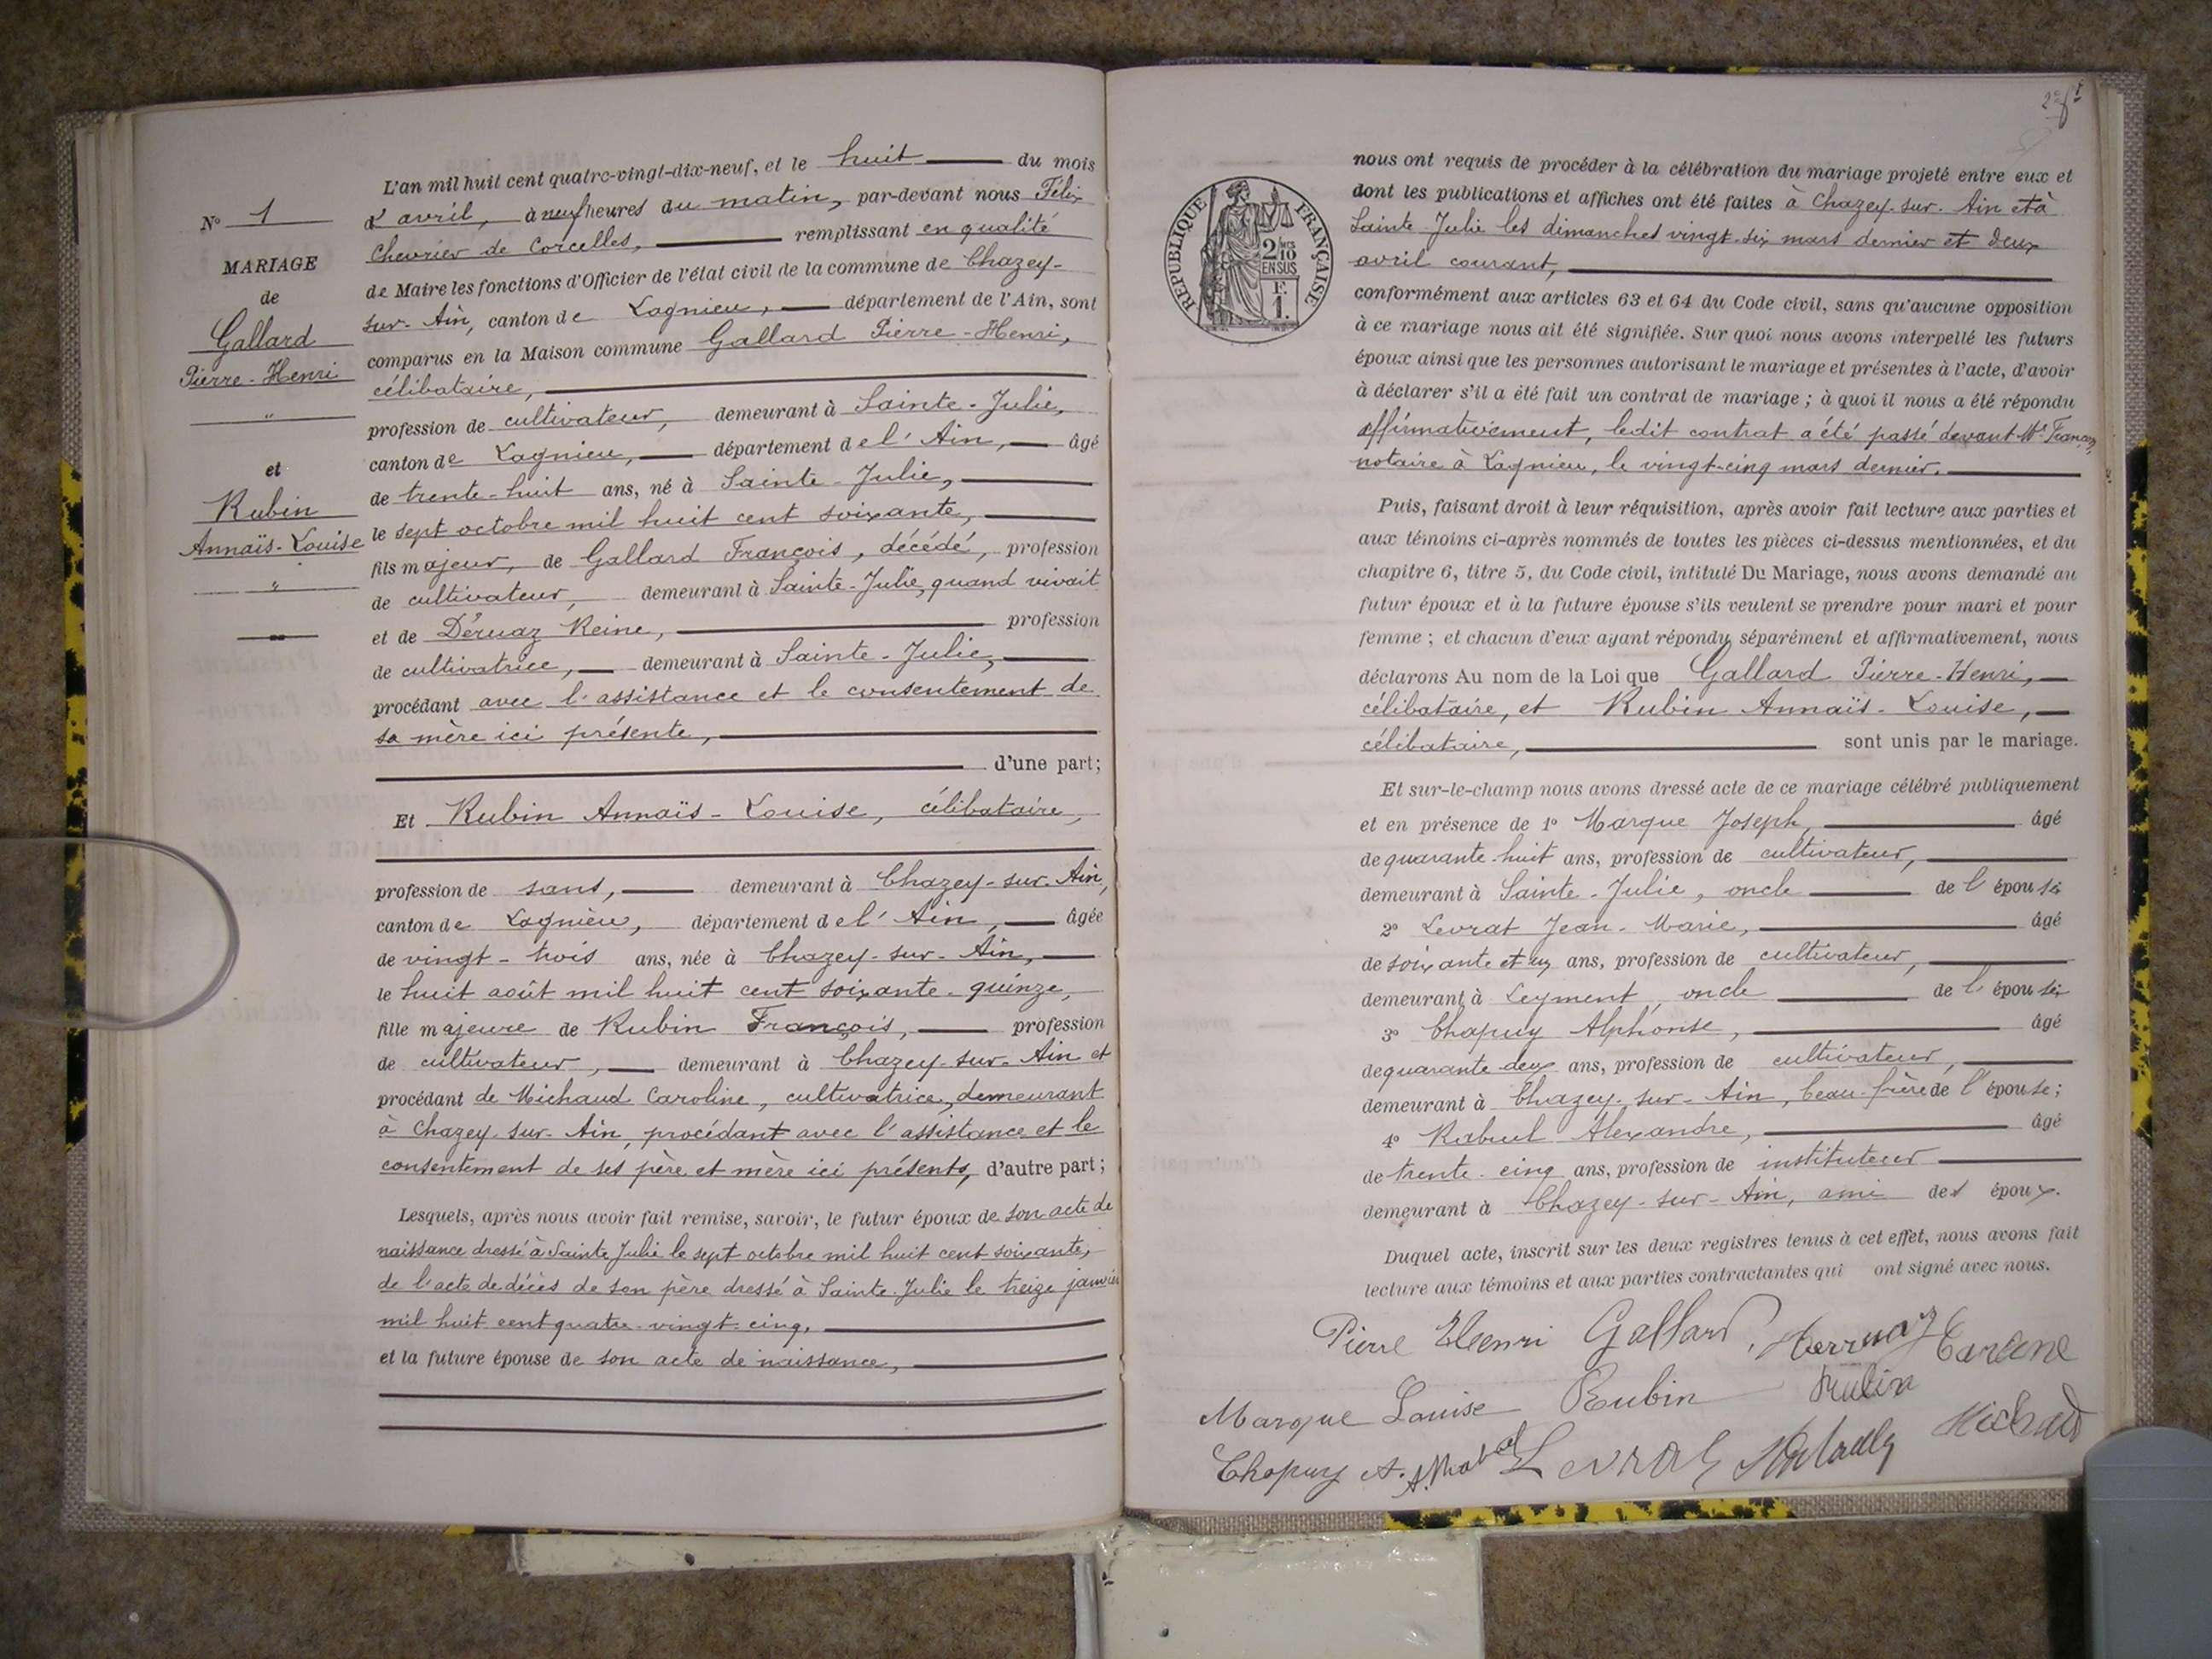 N° 1
MARIAGE
de
Gallard
Pierre-Henri
"
et
Rubin
Annaïs-Louise
"
L'an mil huit cent quatre-vingt-dix-neuf, et le huit du mois
d'avril, à neuf heures du matin, par-devant nous Félix
Chevrier de Corcelles, remplissant en qualité
de Maire les fonctions d'Officier de l'état civil de la commune de Chazey-
sur-Ain, canton de Lagnieu, département de l'Ain, sont
comparus en la Maison commune Gallard Pierre-Henri,
célibataire,
profession de cultivateur, demeurant à Sainte-Julie,
canton de Lagnieu, département de l'Ain, âgé
de trente-huit ans, né à Sainte-Julie,
le sept octobre mil huit cent soixante,
fils majeur, de Gallard François, décédé, profession
de cultivateur, demeurant à Sainte-Julie, quand vivait
et de Déruaz Reine, profession
de cultivatrice, demeurant à Sainte-Julie,
procédant avec l'assistance et le consentement de
sa mère ici présente,
d'une part;
Et Rubin Annaïs-Louise, célibataire,
profession de sans, demeurant à Chazey-sur-Ain,
canton de Lagnieu, département de l'Ain, âgée
de vingt-trois ans, née à Chazey-sur-Ain,
le huit août mil huit cent soixante-quinze,
fille majeure de Rubin François, profession
de cultivateur, demeurant à Chazey-sur-Ain et
procédant de Michaud Caroline, cultivatrice, demeurant
à Chazey-sur-Ain, procédant avec l'assistance et le
consentement de ses père et mère ici présents, d'autre part;
Lesquels, après nous avoir fait remise, savoir, le futur époux de son acte de
naissance dressé à Sainte Julie le sept octobre mil huit cent soixante,
de l'acte de décès de son père dressé à Sainte-Julie le treize janvier
mil huit cent quatre-vingt-cinq,
et la future épouse de son acte de naissance,
RÉPUBLIQUE FRANÇAISE
2/10
EN SUS
F.
1.
nous ont requis de procéder à la célébration du mariage projeté entre eux et
dont les publications et affiches ont été faites à Chazey-sur-Ain et à
Sainte-Julie les dimanches vingt-six mars dernier et deux
avril courant,
conformément aux articles 63 et 64 du Code civil, sans qu'aucune opposition
à ce mariage nous ait été signifiée. Sur quoi nous avons interpellé les futurs
époux ainsi que les personnes autorisant le mariage et présentes à l'acte, d'avoir
à déclarer s'il a été fait un contrat de mariage ; à quoi il nous a été répondu
affirmativement, ledit contrat a été passé devant Me
notaire à Lagnieu, le vingt-cinq mars dernier.
Puis, faisant droit à leur réquisition, après avoir fait lecture aux parties et
aux témoins ci-après nommés de toutes les pièces ci-dessus mentionnées, et du
chapitre 6, titre 5, du Code civil, intitulé Du Mariage, nous avons demandé au
futur époux et à la future épouse s'ils veulent se prendre pour mari et pour
femme ; et chacun d'eux ayant répondu séparément et affirmativement, nous
déclarons Au nom de la Loi que Gallard Pierre-Henri,
célibataire, et Rubin Annaïs-Louise,
célibataire, sont unis par le mariage.
Et sur-le-champ nous avons dressé acte de ce mariage célébré publiquement
et en présence de 1° Marque Joseph, âgé
de quarante-huit ans, profession de cultivateur,
demeurant à Sainte-Julie, oncle de l'épouse
2° Levrat Jean-Marie, âgé
de soixante et un ans, profession de cultivateur,
demeurant à Leyment, oncle de l'épouse
3° Chapuy Alphonse, âgé
de quarante-deux ans, profession de cultivateur,
demeurant à Chazey-sur-Ain, beau-frère de l'épouse;
4° Rabuel Alexandre, âgé
de trente-cinq ans, profession de instituteur
demeurant à Chazey-sur-Ain, ami des époux.
Duquel acte, inscrit sur les deux registres tenus à cet effet, nous avons fait
lecture aux témoins et aux parties contractantes qui ont signé avec nous.
Pierre Henri Gallard
Marque Louise Rubin Rubin
Chapuy A. Levrat Michaud